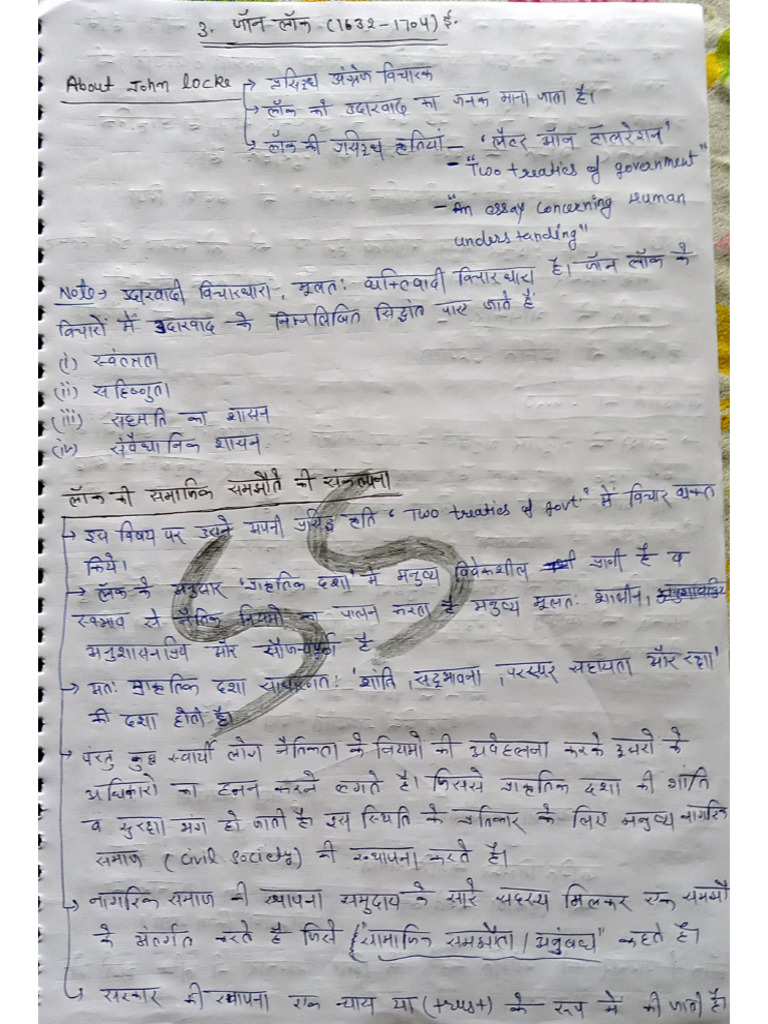 3. जॉन लॉक (1632-1704) ई.
About John locke → प्रसिद्ध अंग्रेज विचारक
→ लॉक को उदारवाद का जनक माना जाता है।
→ लॉक की प्रसिद्ध कृतियां – 'लैटर ऑन टॉलरेशन'
- "Two treaties of government"
- "An essay concerning Human
understanding"
Note → उदारवादी विचारधारा, मूलत: व्यक्तिवादी विचारधारा है। जॉन लॉक के
विचारों में उदारवाद के निम्नलिखित सिद्धांत पाए जाते हैं
(i) स्वतंत्रता
(ii) सहिष्णुता
(iii) सहमति का शासन
(iv) संवैधानिक शासन
लॉक की समाजिक समझौते की संकल्पना
→ इस विषय पर उसने अपनी प्रसिद्ध कृति "Two treaties of govt." में विचार व्यक्त
किये।
→ लॉक के अनुसार 'प्राकृतिक दशा' में मनुष्य विवेकशील प्राणी है व
स्वभाव से नैतिक नियमों का पालन करता है मनुष्य मूलत: शालीन,
अनुशासनप्रिय और सौजन्यपूर्ण है
→ अत: प्राकृतिक दशा साधारणत: 'शांति, सद्भावना, परस्पर सहायता और रक्षा'
की दशा होती है।
→ परंतु कुछ स्वार्थी लोग नैतिकता के नियमों की अवेहलना करके दूसरों के
अधिकारों का हनन करने लगते है। जिससे प्राकृतिक दशा की शांति
व सुरक्षा भंग हो जाती है। इस स्थिति के प्रतिकार के लिए मनुष्य नागरिक
समाज (civil society) की स्थापना करते है।
→ नागरिक समाज की स्थापना समुदाय के सारे सदस्य मिलकर एक समझौते
के अंतर्गत करते है जिसे "सामाजिक समझौता / अनुबंध" कहते है।
→ सरकार की स्थापना एक न्याय या (trust) के रूप में की जाती है।
SS